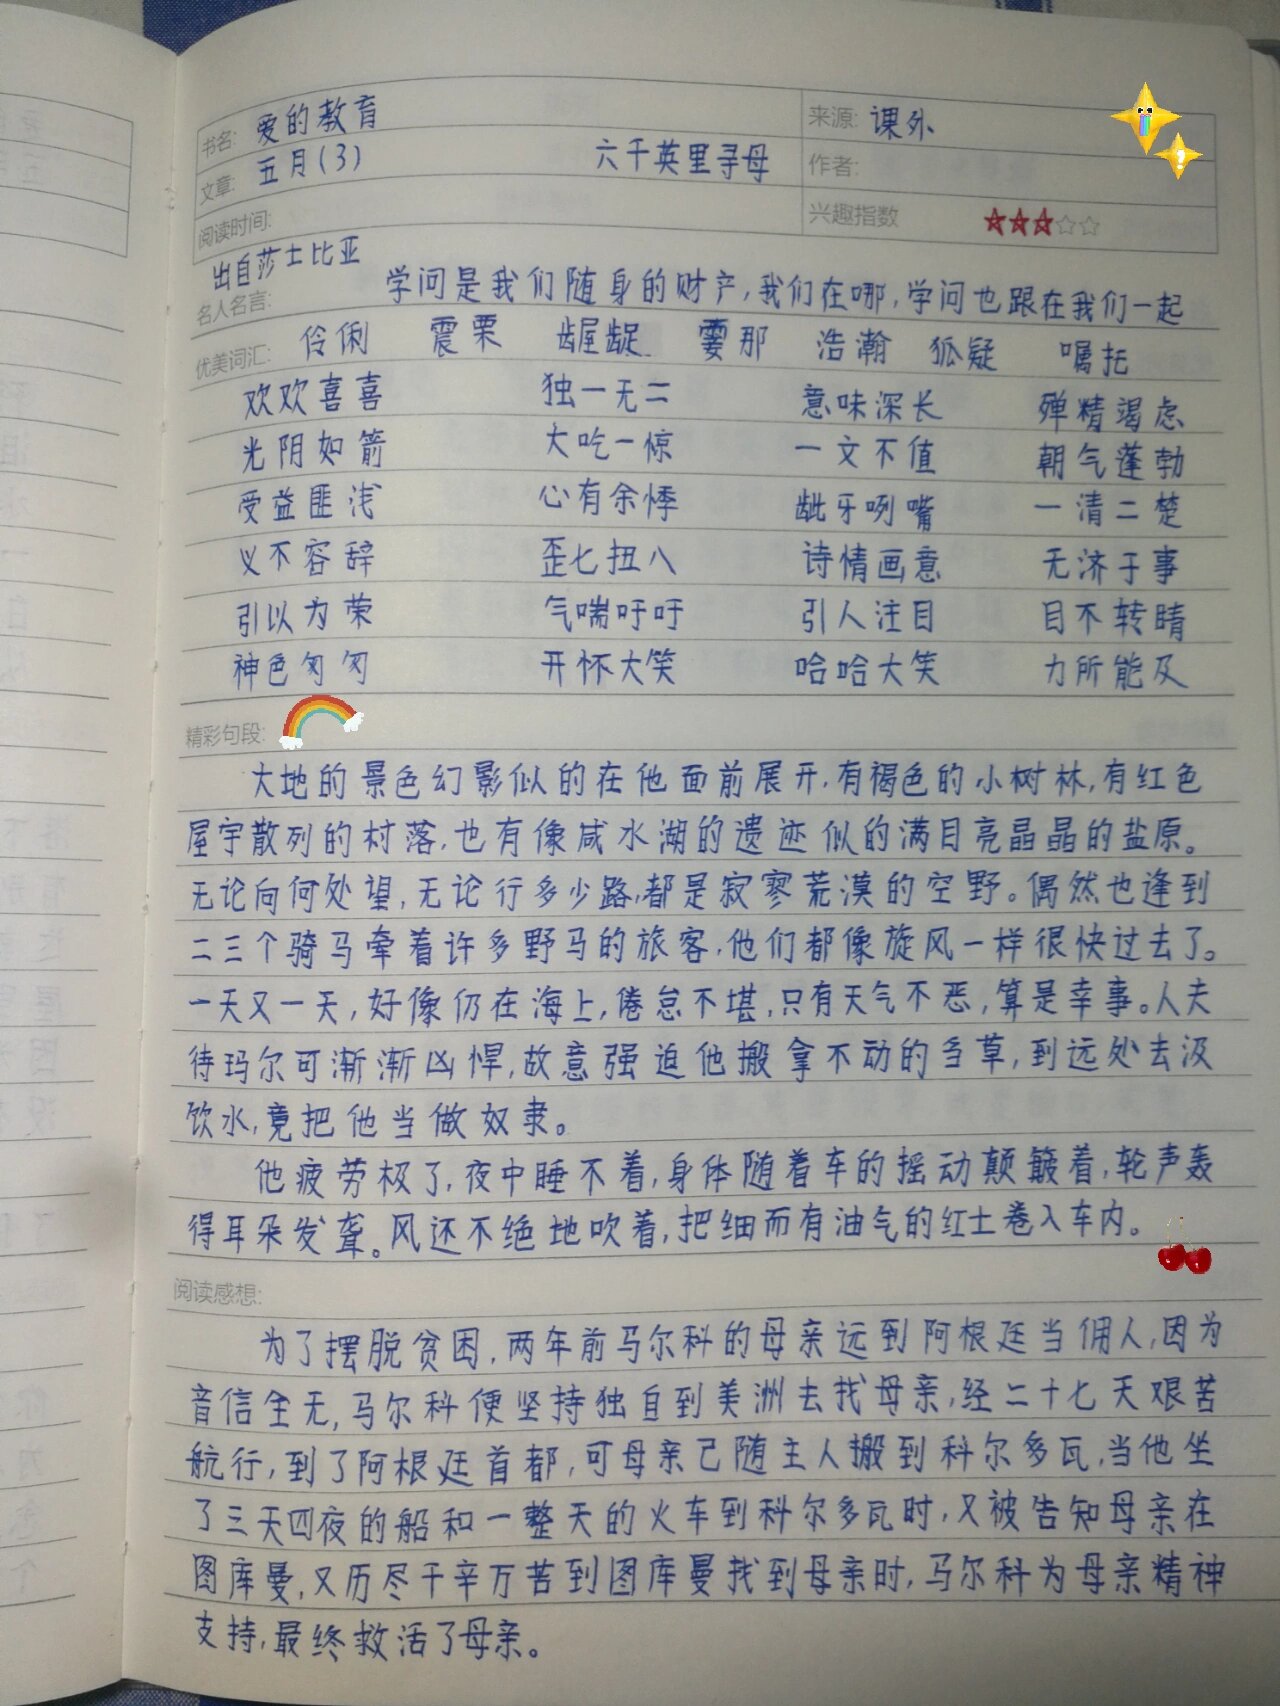 书名: 爱的教育 来源: 课外
文章: 五月(3) 六千英里寻母 作者:
阅读时间: 兴趣指数
出自莎士比亚
名人名言: 学问是我们随身的财产,我们在哪,学问也跟在我们一起
优美词汇: 伶俐 震栗 龌龊 霎那 浩瀚 狐疑 嘱托
欢欢喜喜 独一无二 意味深长 殚精竭虑
光阴如箭 大吃一惊 一文不值 朝气蓬勃
受益匪浅 心有余悸 龇牙咧嘴 一清二楚
义不容辞 歪七扭八 诗情画意 无济于事
引以为荣 气喘吁吁 引人注目 目不转睛
神色匆匆 开怀大笑 哈哈大笑 力所能及
精彩句段:
大地的景色幻影似的在他面前展开,有褐色的小树林,有红色
屋宇散列的村落,也有像咸水湖的遗迹似的满目亮晶晶的盐原。
无论向何处望,无论行多少路,都是寂寥荒漠的空野。偶然也逢到
二三个骑马牵着许多野马的旅客,他们都像旋风一样很快过去了。
一天又一天,好像仍在海上,倦怠不堪,只有天气不恶,算是幸事。人夫
待玛尔可渐渐凶悍,故意强迫他搬拿不动的刍草,到远处去汲
饮水,竟把他当做奴隶。
他疲劳极了,夜中睡不着,身体随着车的摇动颠簸着,轮声轰
得耳朵发聋。风还不绝地吹着,把细而有油气的红土卷入车内。
阅读感想:
为了摆脱贫困,两年前马尔科的母亲远到阿根廷当佣人,因为
音信全无,马尔科便坚持独自到美洲去找母亲,经二十七天艰苦
航行,到了阿根廷首都,可母亲已随主人搬到科尔多瓦,当他坐
了三天四夜的船和一整天的火车到科尔多瓦时,又被告知母亲在
图库曼,又历尽千辛万苦到图库曼找到母亲时,马尔科为母亲精神
支持,最终救活了母亲。